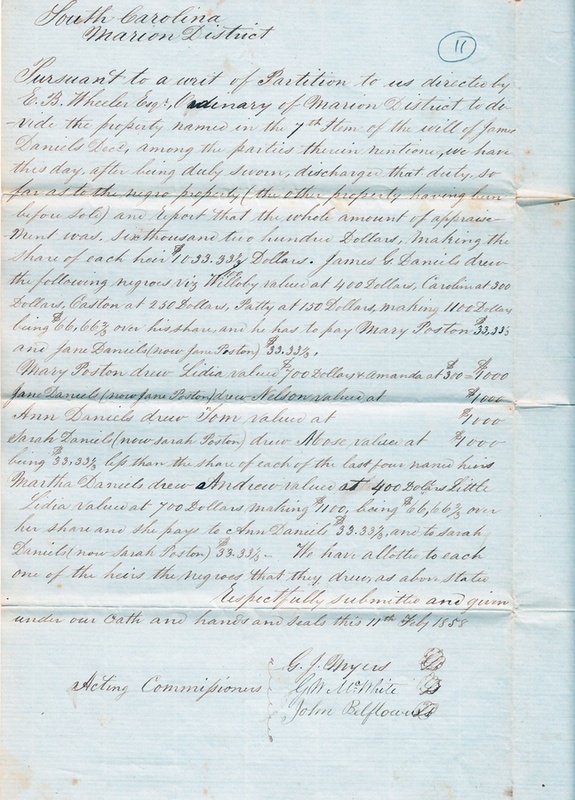 South Carolina
Marion District
11
Pursuant to a writ of Partition to us directed by
E. B. Wheeler Esqr, Ordinary of Marion District to de-
-vide the property named in the 7th Item of the will of James
Daniels Decd, among the parties therein mentione, we have
this day, after being duly sworn, discharged that duty, so
far as to the negro property (the other property having been
before sold) and report that the whole amount of appraise-
ment was, six thousand two hundred Dollars, Making the
share of each heir $1033.33⅓ Dollars. James C Daniels drew
the following negroes viz Willoby valued at 400 Dollars, Carolin at 300
Dollars, Caston at 250 Dollars, Patty at 150 Dollars, making 1100 Dollars
being $66,66⅔ over his share, and he has to pay Mary Poston $33,33⅓
and Jane Daniels (now Jane Poston) $33.33⅓.
Mary Poston drew Lidia valued $700 Dollars & Amanda at $300 = $1000
Jane Daniels (now Jane Poston) drew Nelson valued at $1000
Ann Daniels drew Tom valued at $1000
Sarah Daniels (now Sarah Poston) drew Mose valued at $1000
being $33,33⅓ less than the share of each of the last four named heirs
Martha Daniels drew Andrew valued at 400 Dollars Little
Lidia valued at 700 Dollars making $1100, being $66,66⅔ over
her share and she pays to Ann Daniels $33.33⅓, and to Sarah
Daniels (now Sarah Poston) $33.33⅓ — We have allotted to each
one of the heirs the negroes that they drew, as above state
Respectfully submitted and given
under our Oath and hands and seals this 11th Feby 1858
G. J. Myers
Acting Commissioners G W McWhite
John Belflowers